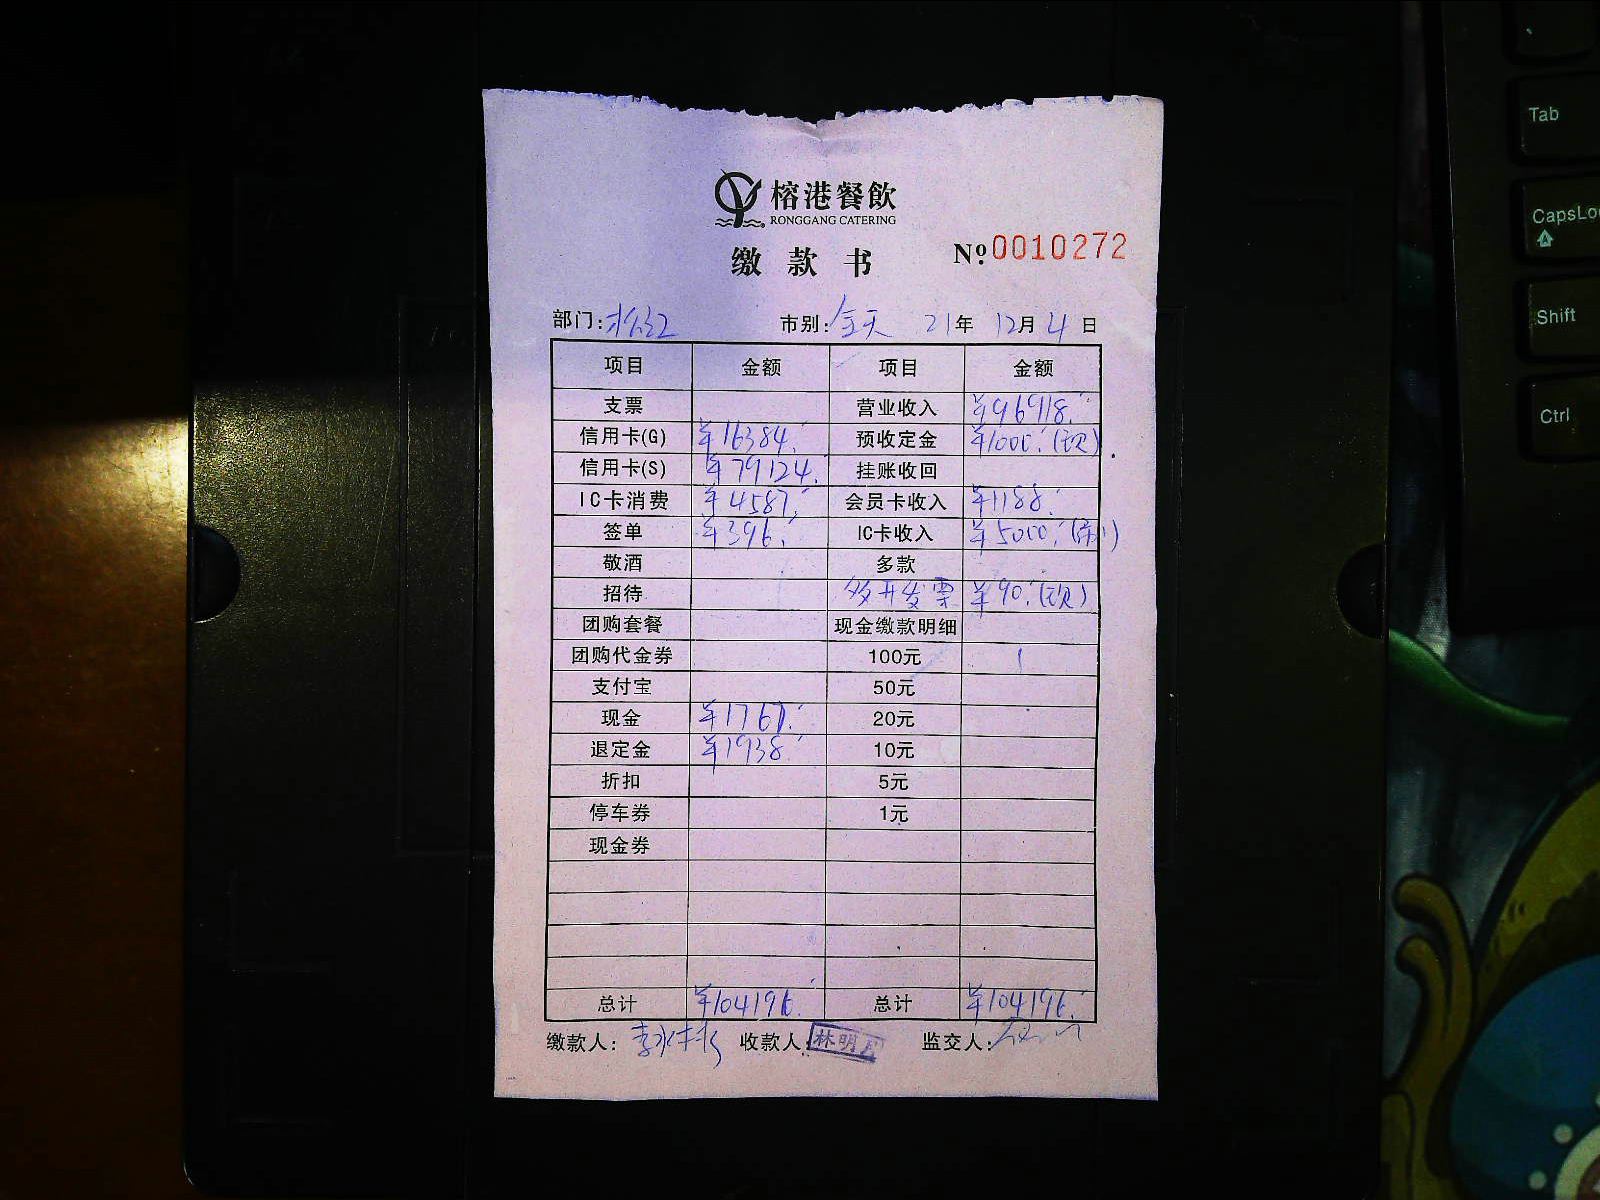 榕港餐飲
RONGGANG CATERING
缴款书 №0010272
部门: 市别:全天 21年 12月 4日
项目 金额 项目 金额
支票 营业收入 ¥96918.
信用卡(G) ¥16384. 预收定金 ¥1000.(现)
信用卡(S) ¥79124. 挂账收回
IC卡消费 ¥4587. 会员卡收入 ¥1188.
签单 ¥396. IC卡收入 ¥5000.
敬酒 多款
招待 多开发票 ¥90.(现)
团购套餐 现金缴款明细
团购代金券 100元
支付宝 50元
现金 ¥1767. 20元
退定金 ¥1938. 10元
折扣 5元
停车券 1元
现金券
总计 ¥104196. 总计 ¥104196.
缴款人: 收款人: 林明 监交人:
Tab
CapsLo
Shift
Ctrl